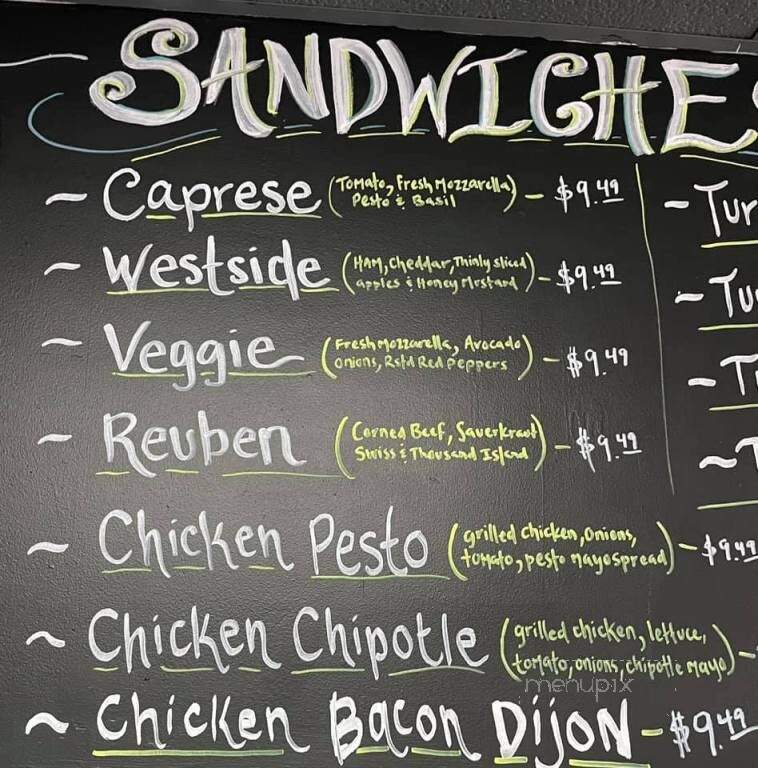 SANDWICHES
~ Caprese (Tomato, Fresh Mozzarella, Pesto & Basil) - $9.49
~ Westside (HAM, Cheddar, Thinly sliced apples & Honey Mustard) - $9.49
~ Veggie (Fresh Mozzarella, Avocado onions, Rstd Red Peppers) - $9.49
~ Reuben (Corned Beef, Sauerkraut Swiss & Thousand Island) - $9.49
~ Chicken Pesto (grilled chicken, onions, tomato, pesto mayo spread) - $9.49
~ Chicken Chipotle (grilled chicken, lettuce, tomato, onions, chipotle mayo) -
~ Chicken Bacon Dijon - $9.49
~ Tur
~ Tu
~ T
~ T
menupix